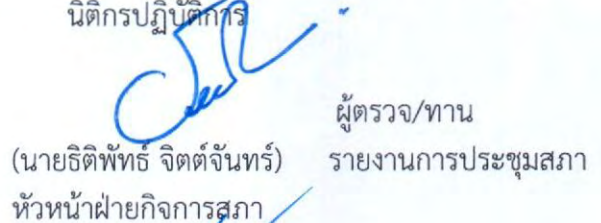 นิติกรปฏิบัติการ
ผู้ตรวจ/ทาน
(นายธิติพัทธ์ จิตต์จันทร์) รายงานการประชุมสภา
หัวหน้าฝ่ายกิจการสภา